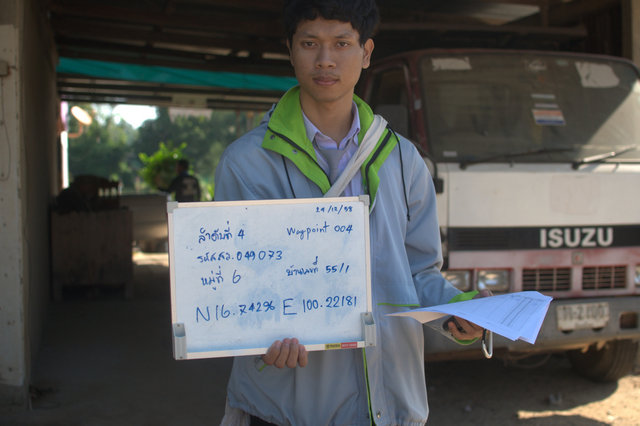 29/12/58
ลำดับที่ 4 Waypoint 004
รหัสสว. 049073
หมู่ที่ 6 บ้านเลขที่ 55/1
N16.74296 E 100.22181
ISUZU